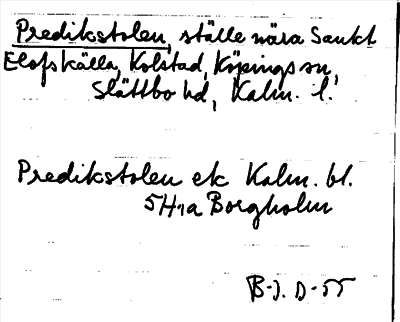 Predikstolen, ställe nära Sankt
Elofskälla, Kolstad, Köpings sn,
Slättbo hd, Kalm. l.
Predikstolen ek Kalm. bl.
5H1a Borgholm
B-J. D-55